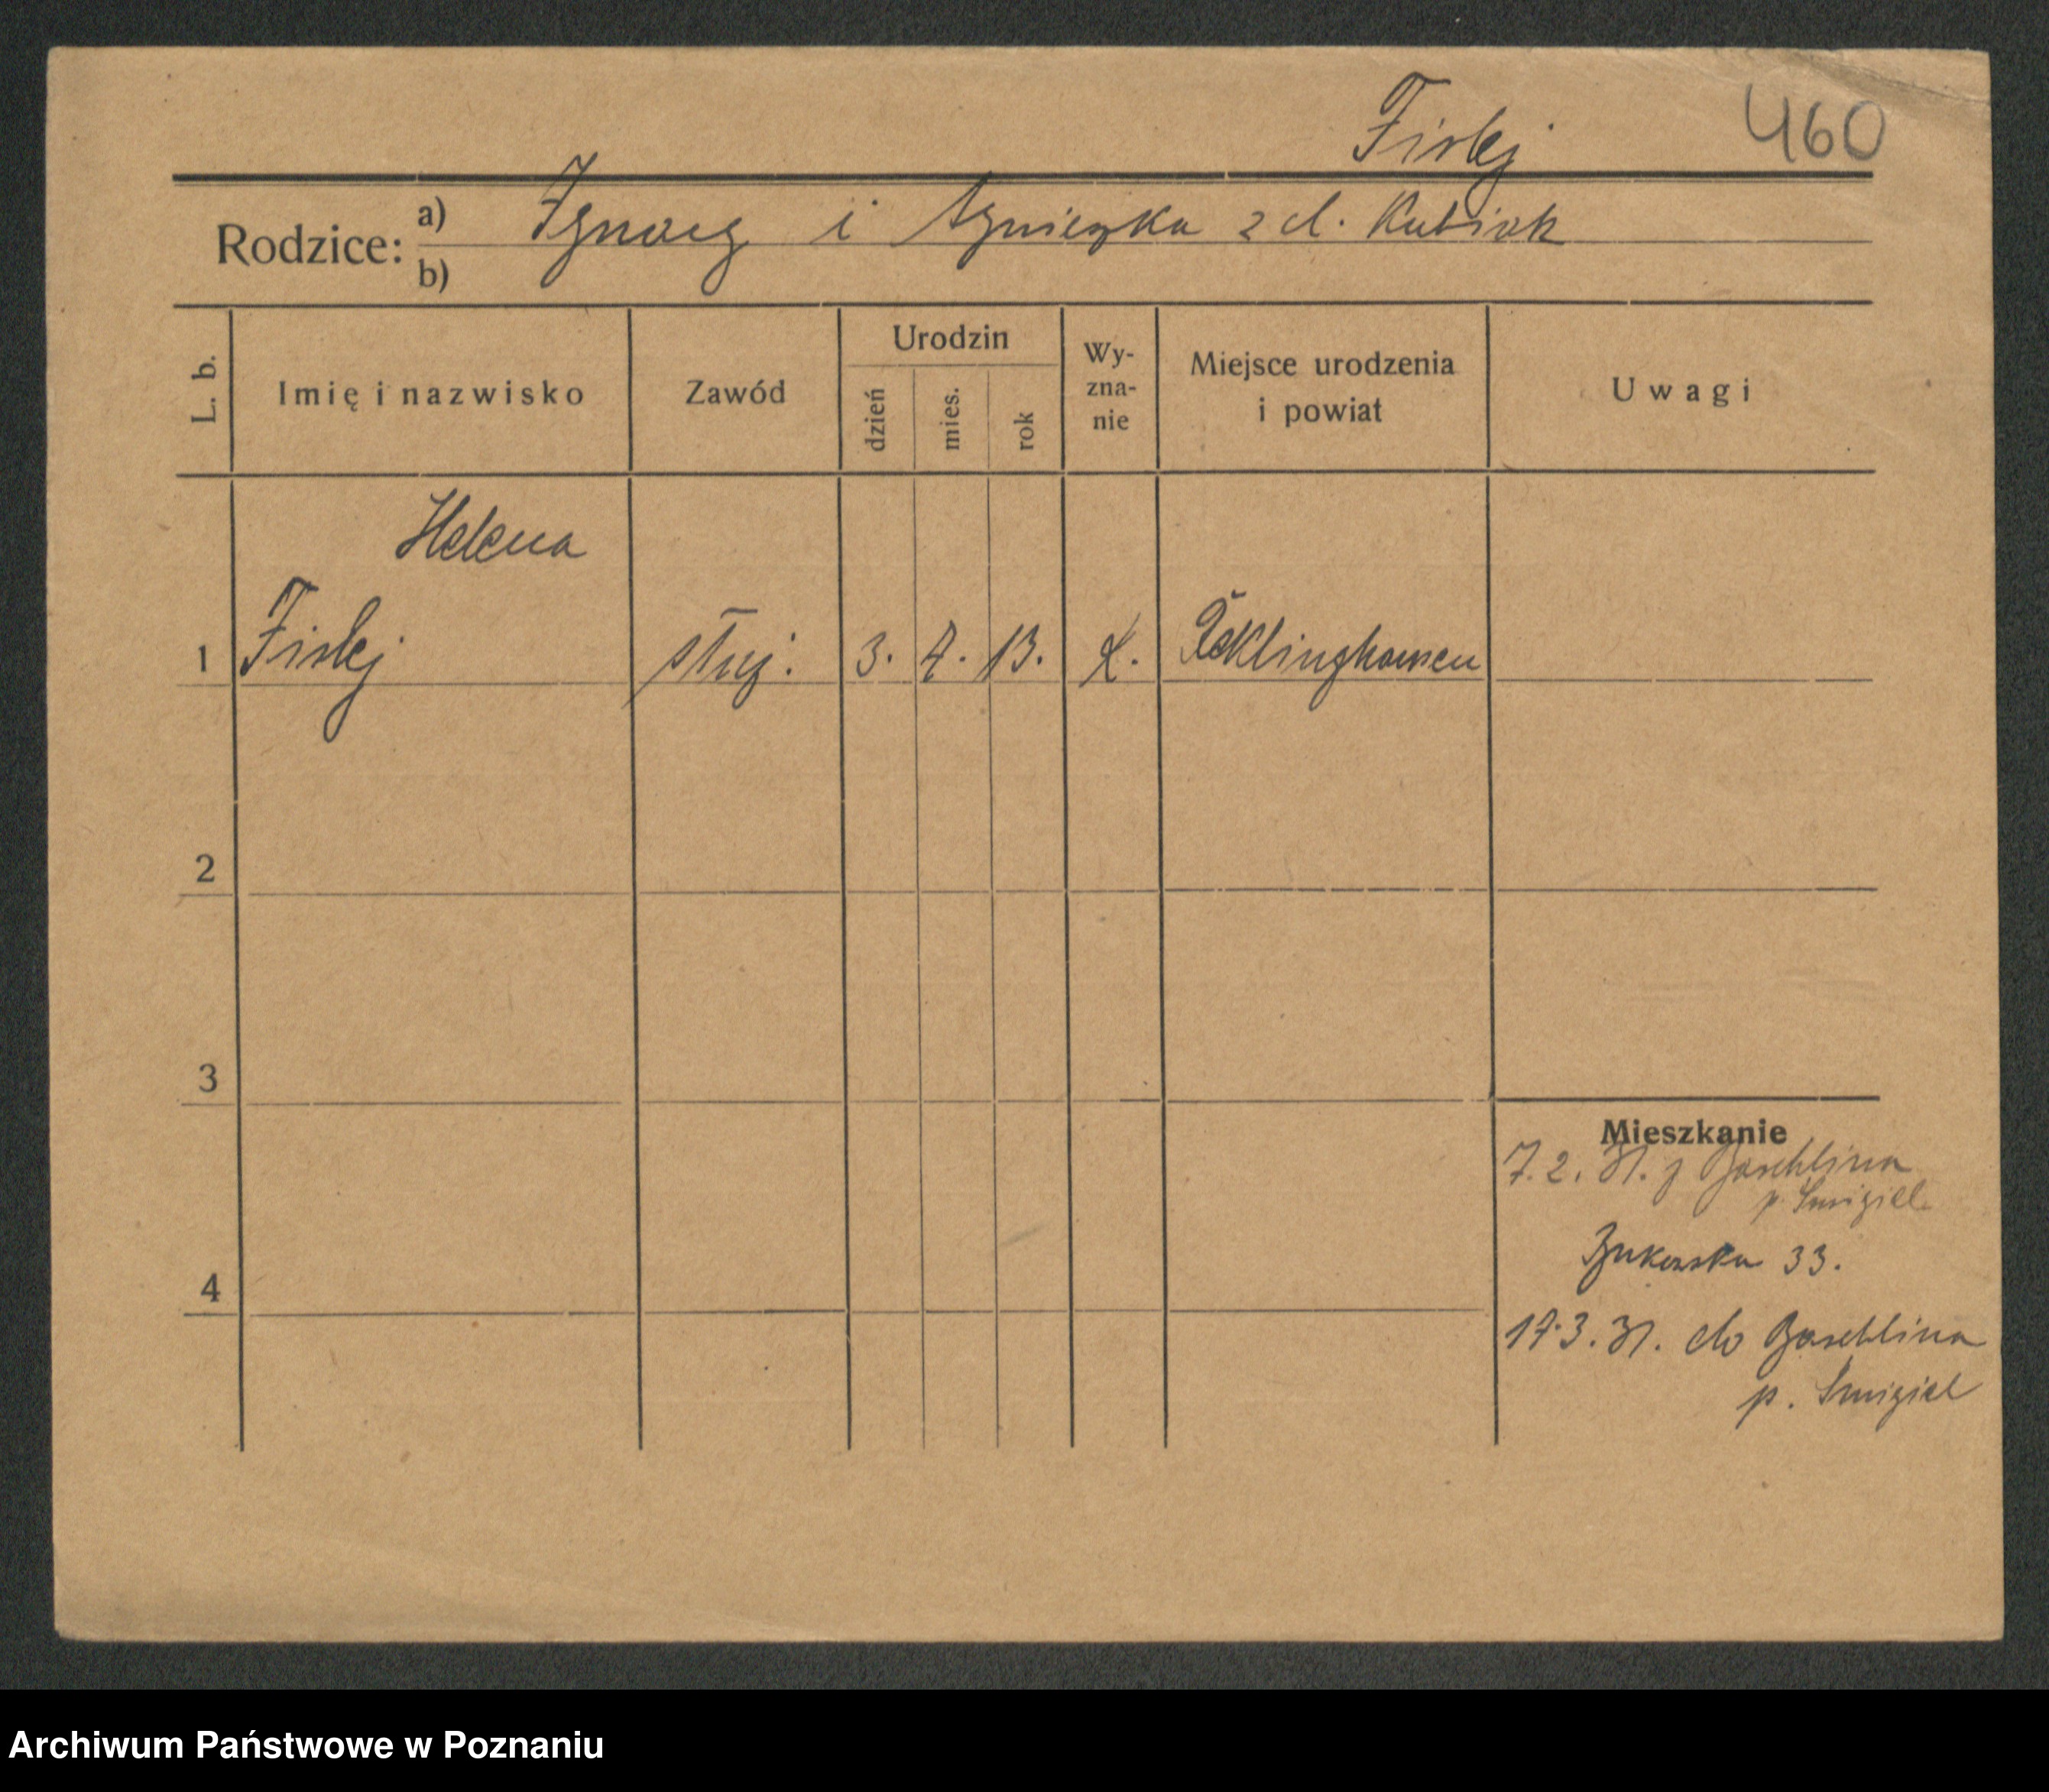 Fislej
460
Rodzice: a) Ignacy i Agnieszka z d. Kubiak
b)
L. b. Imię i nazwisko Zawód Urodzin dzień mies. rok Wy-zna-nie Miejsce urodzenia i powiat Uwagi
Helena
1 Fislej służ. 3. 4. 13. k. Recklinghausen
2
3
Mieszkanie
7. 2. 31. z
p. Śmigiel
4
Bukowska 33.
17. 3. 31. do
p. Śmigiel
Archiwum Państwowe w Poznaniu